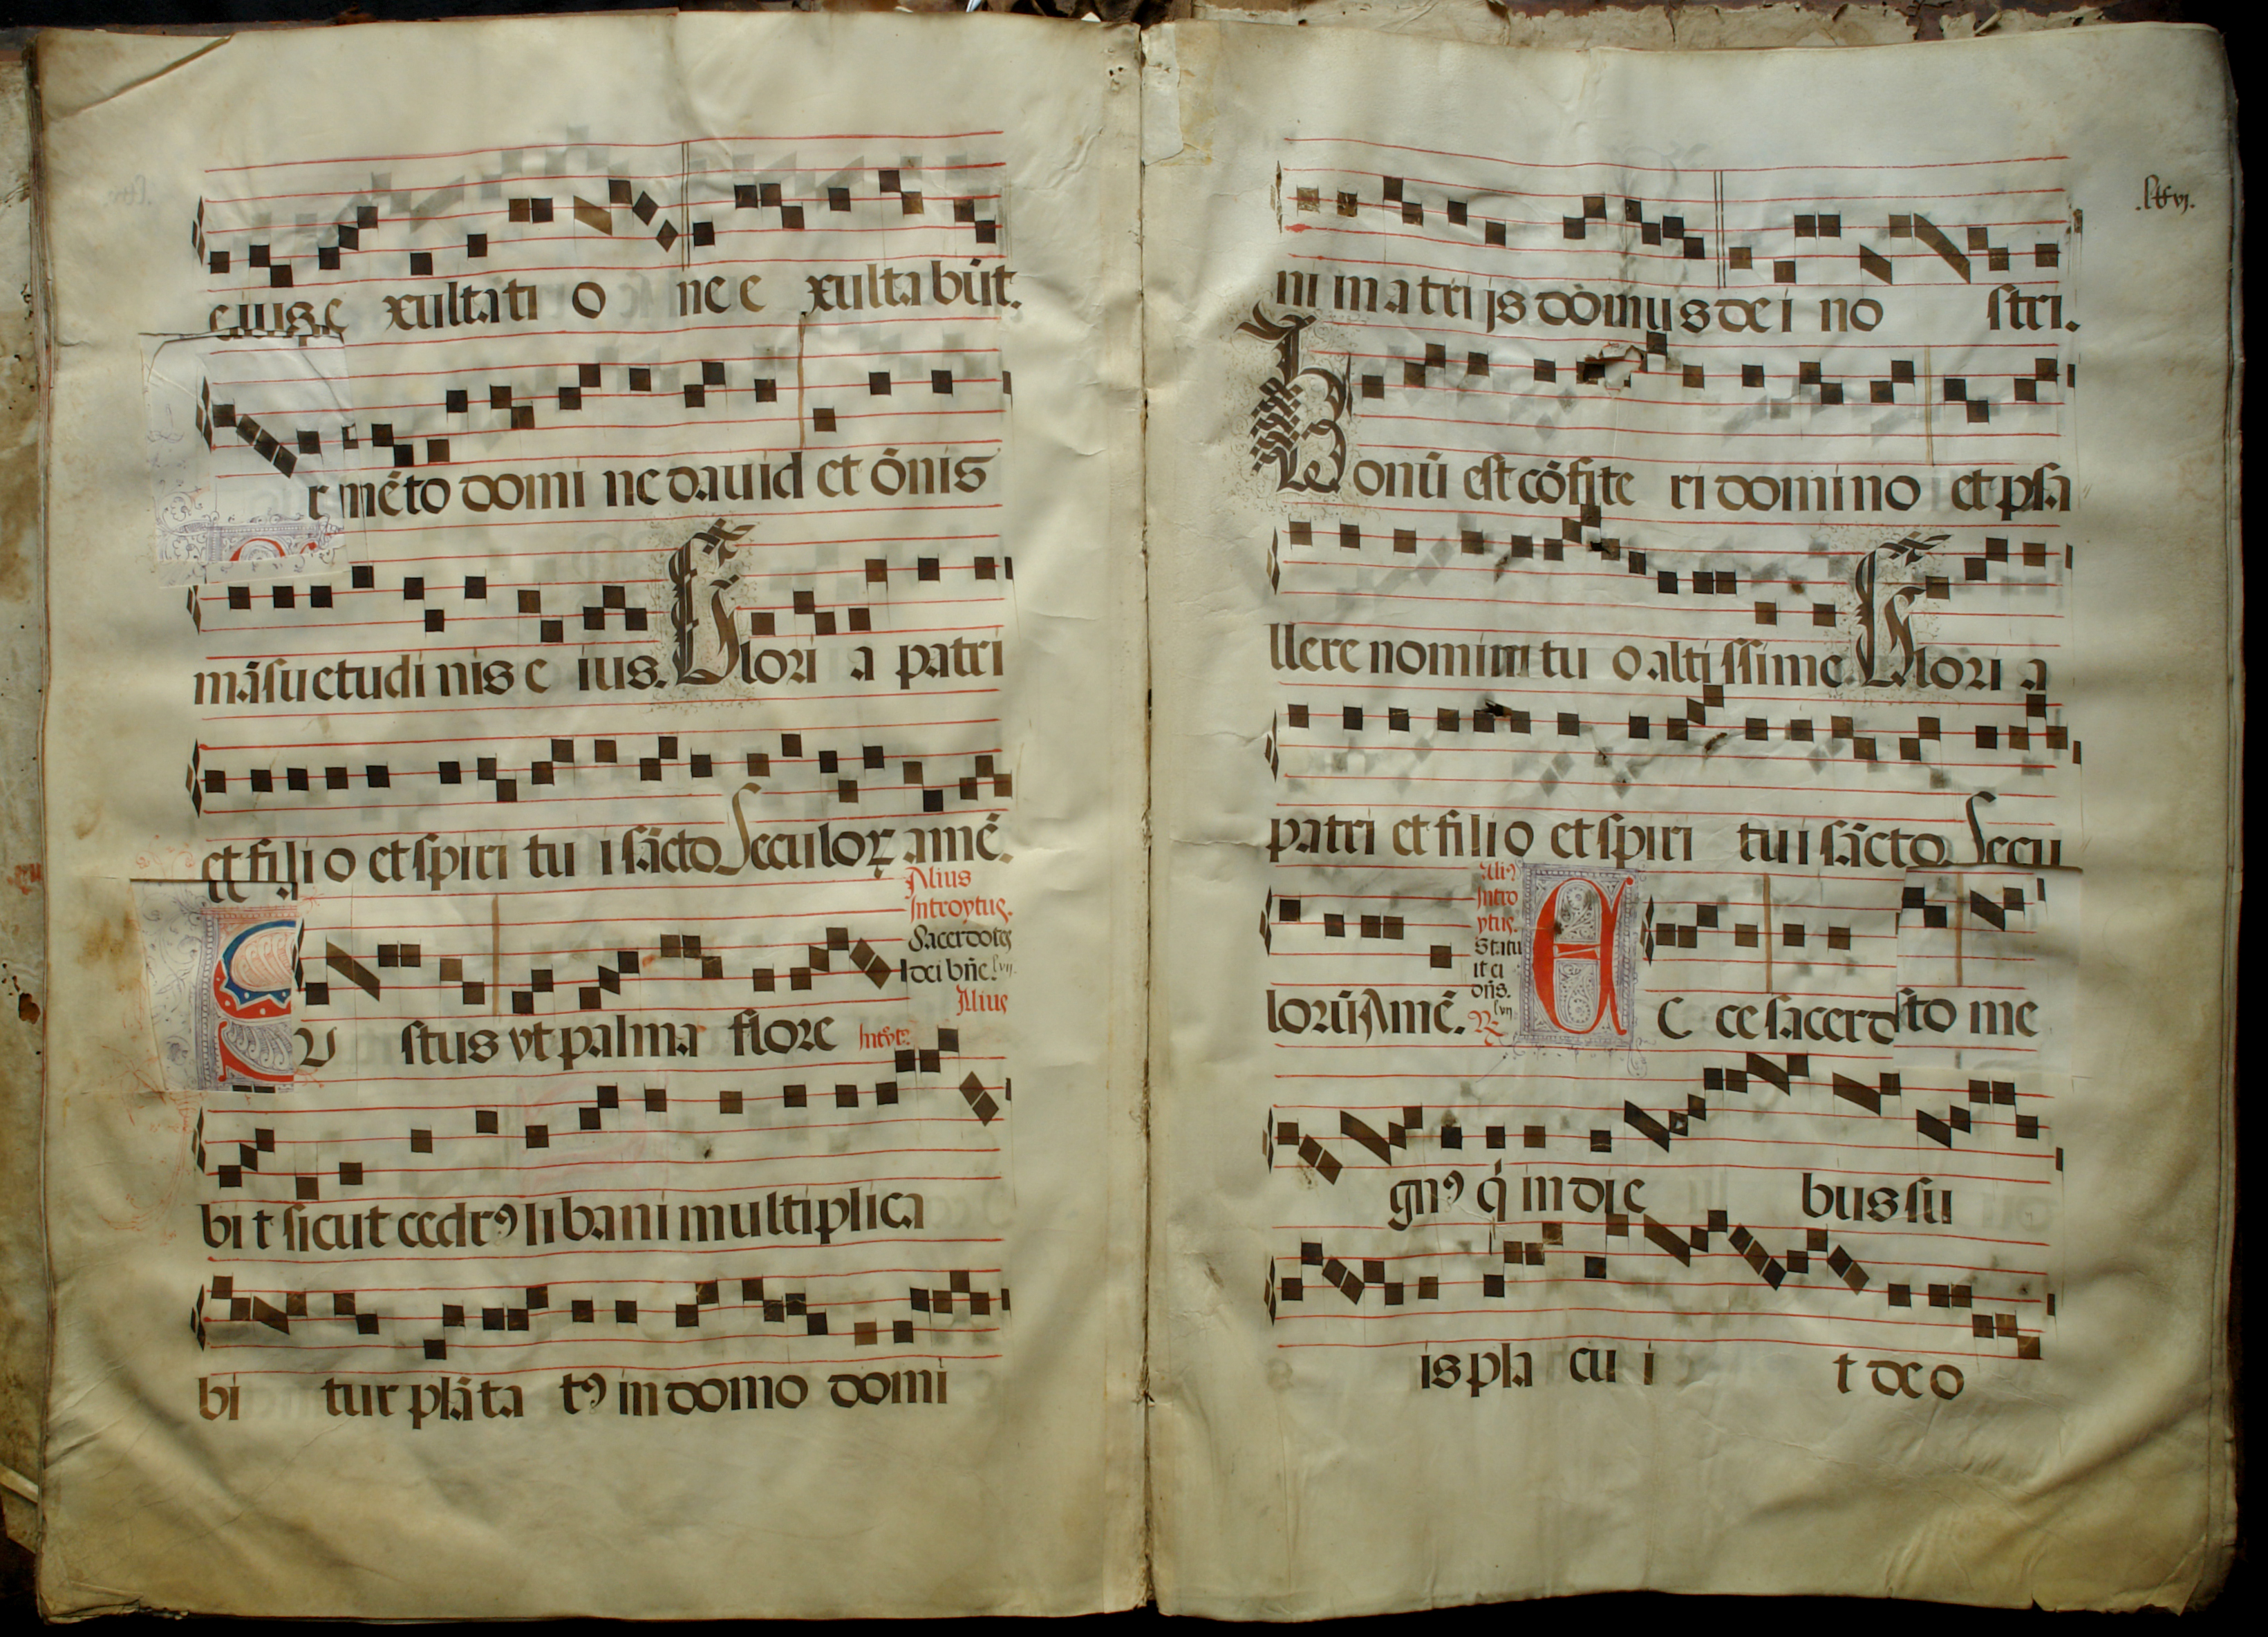 eius e xultati o ne e xultabūt.
r mēto domi ne dauid et ōnis
māsuetudi nis e ius. Glori a patri
et fili o et spiri tu i sācto Seculoꝝ amē.
Alius
Introytus.
Sacerdotes
dei bñe. lvij.
Alius
Introyt⁹.
IU stus vt palma flore
bi t sicut cedr⁹ libani multiplica
bi tur plāta t⁹ in domo domi
.lxvj.
ni in atri js domus de i no stri.
Bonū est cōfite ri domino et psa
llere nomini tu o altissime. Glori a
patri et fili o et spiri tui sācto. Secu
lorū Amē.
Ali⁹
Intro
ytus.
Statu
it ei
dñs.
lvij
R
E C ce sacerdto me
gn⁹ q̇ in die bus su
is pla cu i t deo